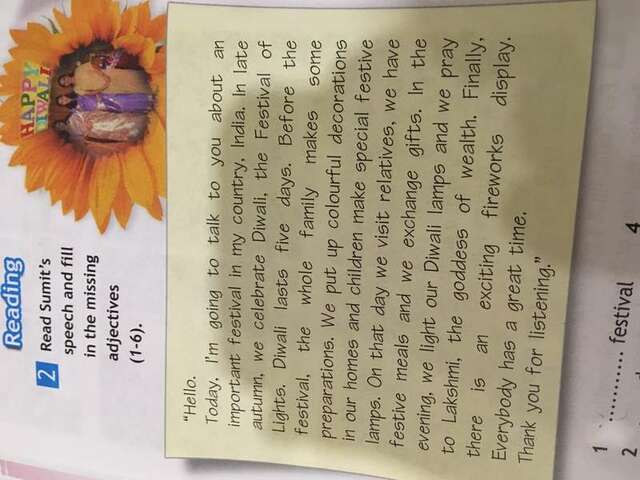 Reading
2 Read Sumit's
speech and fill
in the missing
adjectives
(1-6).
HAPPY
DIWALI
"Hello.
Today, I'm going to talk to you about an
important festival in my country, India. In late
autumn, we celebrate Diwali, the Festival of
Lights. Diwali lasts five days. Before the
festival, the whole family makes some
preparations. We put up colourful decorations
in our homes and children make special festive
lamps. On that day we visit relatives, we have
festive meals and we exchange gifts. In the
evening, we light our Diwali lamps and we pray
to Lakshmi, the goddess of wealth. Finally,
there is an exciting fireworks display.
Everybody has a great time.
Thank you for listening."
1 ........... festival
2
4